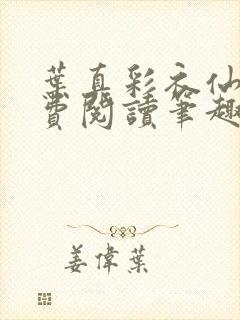 葉真彩衣仙
費閱讀筆趣
姜偉葉